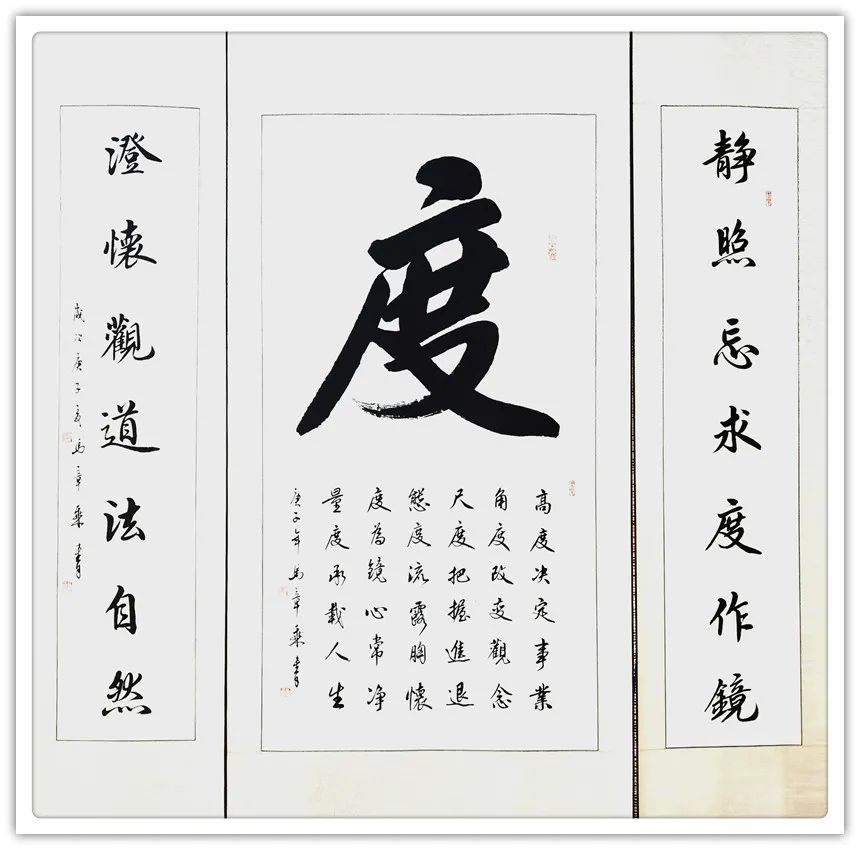 静照忘求度作鏡
度
高度决定事業
角度改变觀念
尺度把握進退
態度流露胸懷
度為鏡心常净
量度承載人生
庚子年馬章乘書
澄懷觀道法自然
歲次庚子年馬章乘書